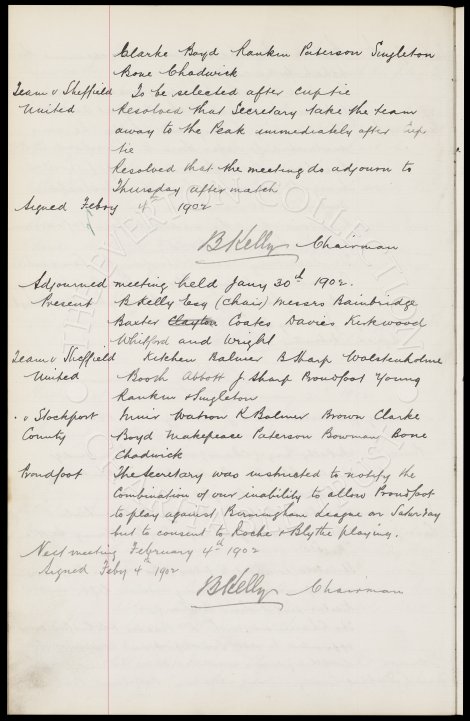 Clarke Boyd Rankin Paterson Singleton
Bone Chadwick
Team v Sheffield To be selected after cup tie
United Resolved that Secretary take the team
away to the Peak immediately after Cup
tie
Resolved that the meeting do adjourn to
Thursday after match
Signed Febry 4th 1902
B Kelly Chairman
Adjourned meeting held Jany 30th 1902.
Present B Kelly Esq (Chair) Messrs Bainbridge
Baxter Clayton Coates Davies Kirkwood
Whitford and Wright
Team v Sheffield Kitchen Balmer B Sharp Wolstenholme
United Booth Abbott J Sharp Proudfoot Young
Rankin & Singleton
" v Stockport Muir Watson R Balmer Brown Clarke
County Boyd Makepeace Paterson Bowman Bone
Chadwick
Proudfoot The Secretary was instructed to notify the
Combination of our inability to allow Proudfoot
to play against Birmingham League on Saturday
but to consent to Roche & Blythe playing.
Next meeting February 4th 1902
Signed Feby 4th 1902
B Kelly Chairman
THE EVERTON COLLECTION